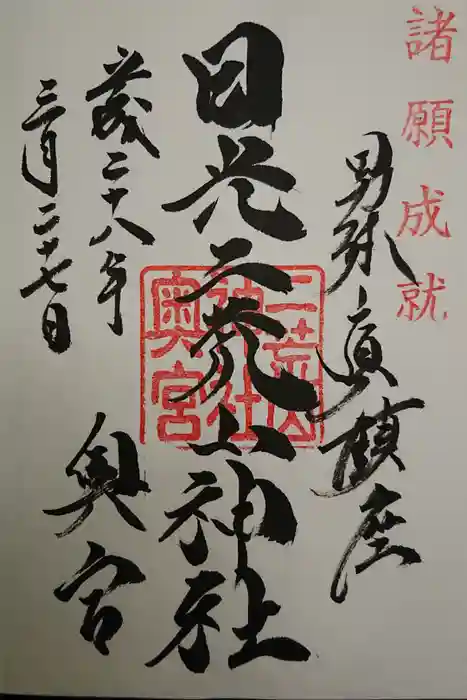 諸願成就
男躰 座
日光二荒山神社
平成二十八年
三月二十七日
奥宮
二荒山
神社
奥宮